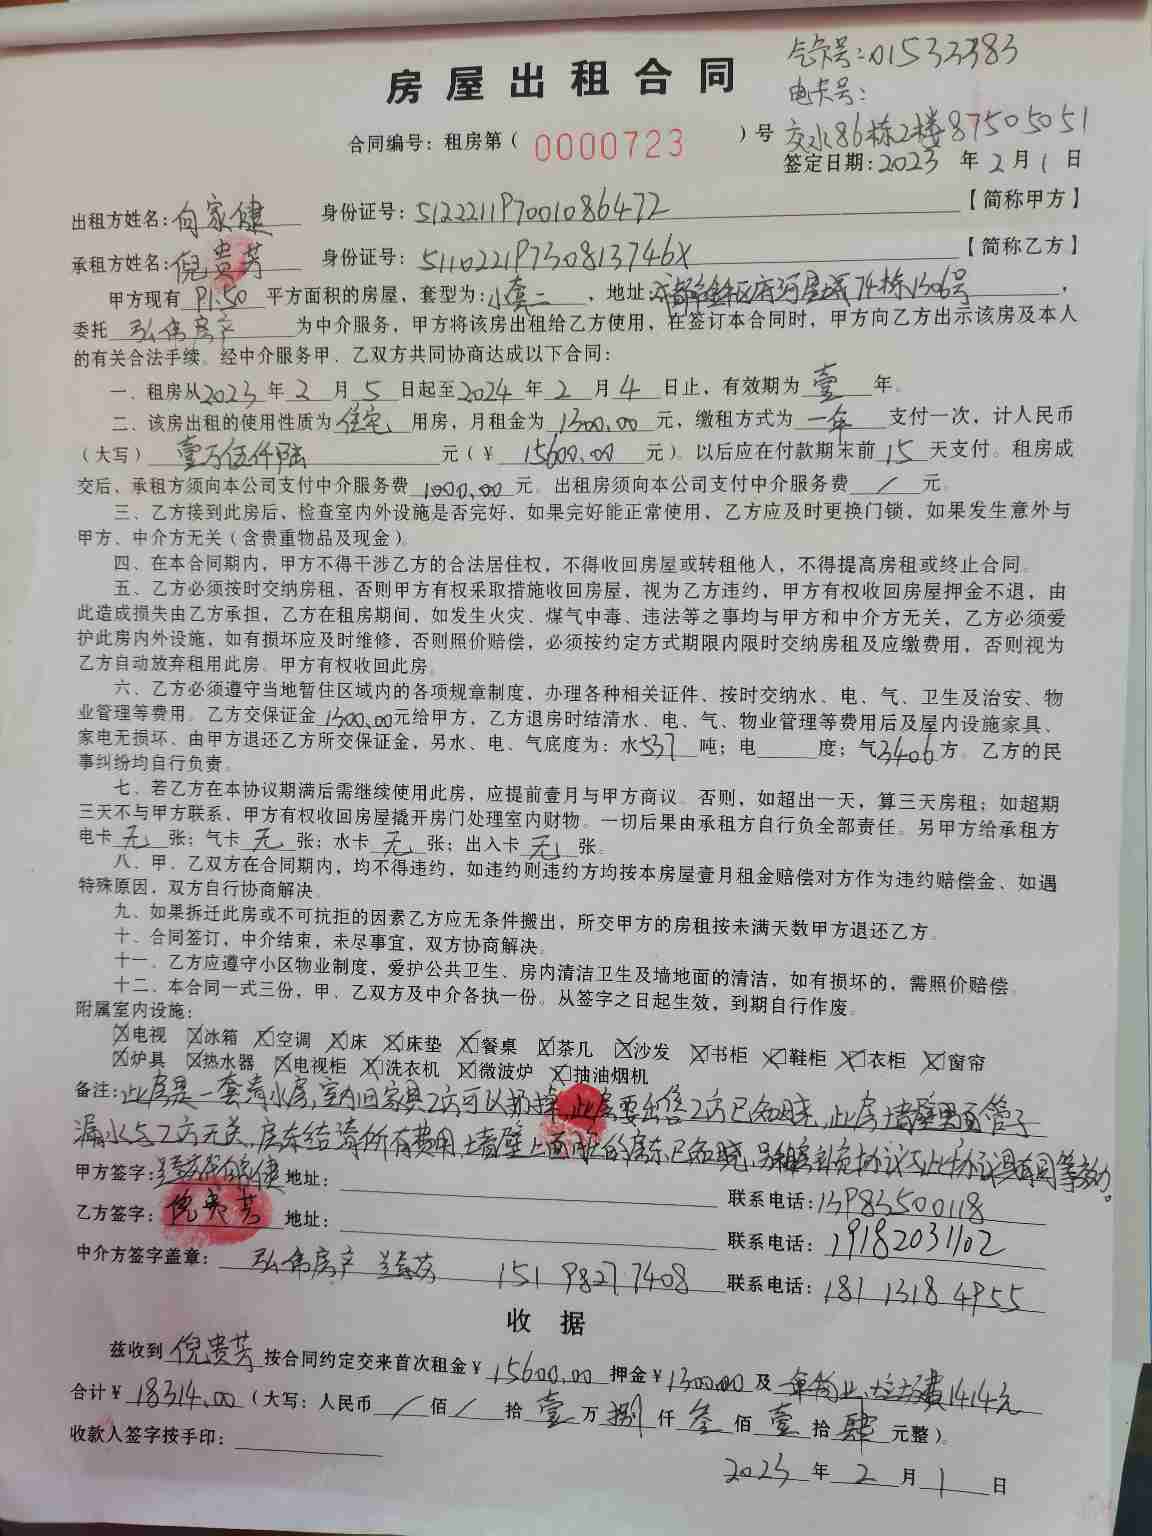 气卡号:01533383
房屋出租合同
电卡号:
合同编号:租房第( 0000723 )号 交水86栋2楼87505051
签定日期:2023年2月1日
出租方姓名:向家健 身份证号: 【简称甲方】
承租方姓名:倪贵芳 身份证号: 【简称乙方】
甲方现有 91.50 平方面积的房屋,套型为:小套二,地址:74栋1306号,
委托 弘伟房产 为中介服务,甲方将该房出租给乙方使用,在签订本合同时,甲方向乙方出示该房及本人
的有关合法手续。经中介服务甲、乙双方共同协商达成以下合同:
一、租房从2023年2月5日起至2024年2月4日止,有效期为壹年。
二、该房出租的使用性质为住宅用房,月租金为1300.00元,缴租方式为一年支付一次,计人民币
(大写)壹万伍仟陆元(¥15600.00元)。以后应在付款期末前15天支付。租房成
交后、承租方须向本公司支付中介服务费1000.00元。出租房须向本公司支付中介服务费/元。
三、乙方接到此房后、检查室内外设施是否完好,如果完好能正常使用,乙方应及时更换门锁,如果发生意外与
甲方、中介方无关(含贵重物品及现金)。
四、在本合同期内,甲方不得干涉乙方的合法居住权,不得收回房屋或转租他人,不得提高房租或终止合同。
五、乙方必须按时交纳房租,否则甲方有权采取措施收回房屋,视为乙方违约,甲方有权收回房屋押金不退,由
此造成损失由乙方承担,乙方在租房期间,如发生火灾、煤气中毒、违法等之事均与甲方和中介方无关,乙方必须爱
护此房内外设施,如有损坏应及时维修,否则照价赔偿,必须按约定方式期限内限时交纳房租及应缴费用,否则视为
乙方自动放弃租用此房。甲方有权收回此房。
六、乙方必须遵守当地暂住区域内的各项规章制度,办理各种相关证件、按时交纳水、电、气、卫生及治安、物
业管理等费用。乙方交保证金1300.00元给甲方,乙方退房时结清水、电、气、物业管理等费用后及屋内设施家具、
家电无损坏、由甲方退还乙方所交保证金,另水、电、气底度为:水537吨;电 度;气3406方。乙方的民
事纠纷均自行负责。
七、若乙方在本协议期满后需继续使用此房,应提前壹月与甲方商议。否则,如超出一天,算三天房租;如超期
三天不与甲方联系、甲方有权收回房屋撬开房门处理室内财物。一切后果由承租方自行负全部责任。另甲方给承租方
电卡无张;气卡无张;水卡无张;出入卡无张。
八、甲、乙双方在合同期内,均不得违约,如违约则违约方均按本房屋壹月租金赔偿对方作为违约赔偿金、如遇
特殊原因,双方自行协商解决。
九、如果拆迁此房或不可抗拒的因素乙方应无条件搬出,所交甲方的房租按未满天数甲方退还乙方。
十、合同签订,中介结束,未尽事宜,双方协商解决。
十一、乙方应遵守小区物业制度,爱护公共卫生、房内清洁卫生及墙地面的清洁,如有损坏的,需照价赔偿。
十二、本合同一式三份,甲、乙双方及中介各执一份。从签字之日起生效,到期自行作废。
附属室内设施:
☒电视 ☒冰箱 ☒空调 ☒床 ☒床垫 ☒餐桌 ☒茶几 ☒沙发 ☒书柜 ☒鞋柜 ☒衣柜 ☒窗帘
☒炉具 ☒热水器 ☒电视柜 ☒洗衣机 ☒微波炉 ☒抽油烟机
备注:此房是一套清水房,室内旧家具乙方可以扔掉,此房要出售乙方已知晓,此房墙壁里面管子
漏水与乙方无关,房东结清所有费用,墙壁上面的房东已知晓,补充协议与此协议具有同等效力。
甲方签字:向家健 地址: 联系电话:13983500118
乙方签字:倪贵芳 地址: 联系电话:19182031102
中介方签字盖章:弘伟房产 15198277408 联系电话:18113184955
收据
兹收到倪贵芳按合同约定交来首次租金¥15600.00押金¥1300.00及一年物业、垃圾费1414元
合计¥18314.00(大写:人民币/佰/拾壹万捌仟叁佰壹拾肆元整)。
收款人签字按手印:
2023年2月1日